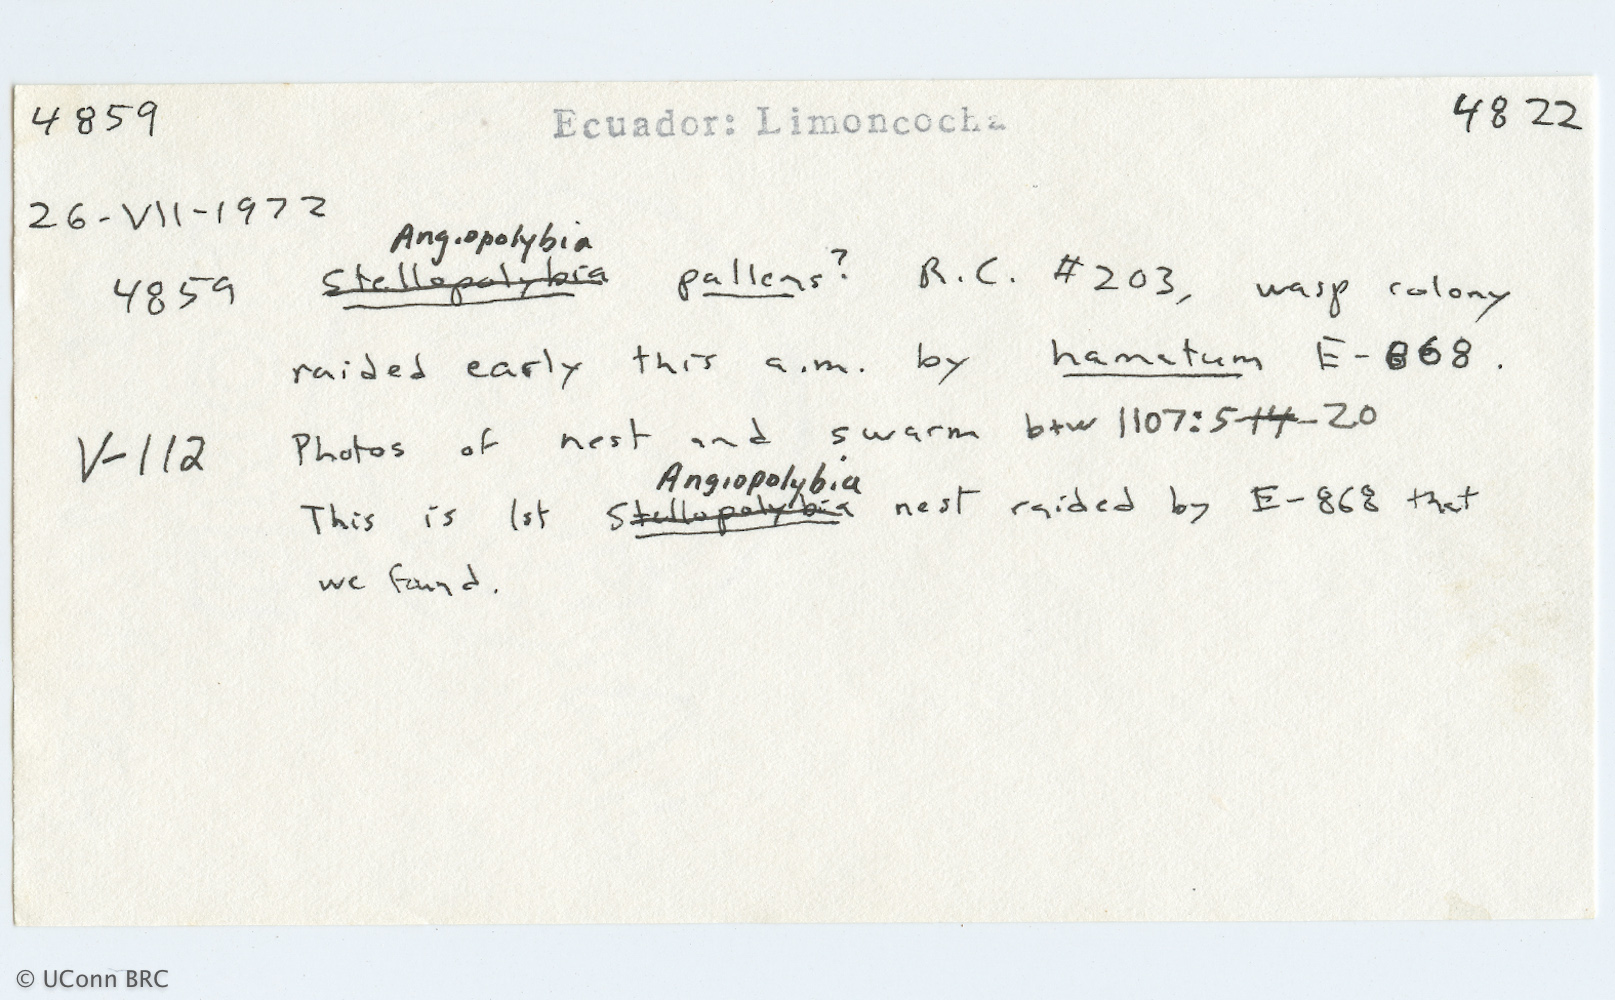 4859 Ecuador: Limoncocha 4822
26-VII-1972
Angiopolybia
4859 Stellopolybia pallens? R.C. #203, wasp colony
raided early this a.m. by hamatum E-868.
V-112 Photos of nest and swarm btw 1107:5-14-20
Angiopolybia
This is 1st Stellopolybia nest raided by E-868 that
we found.
© UConn BRC